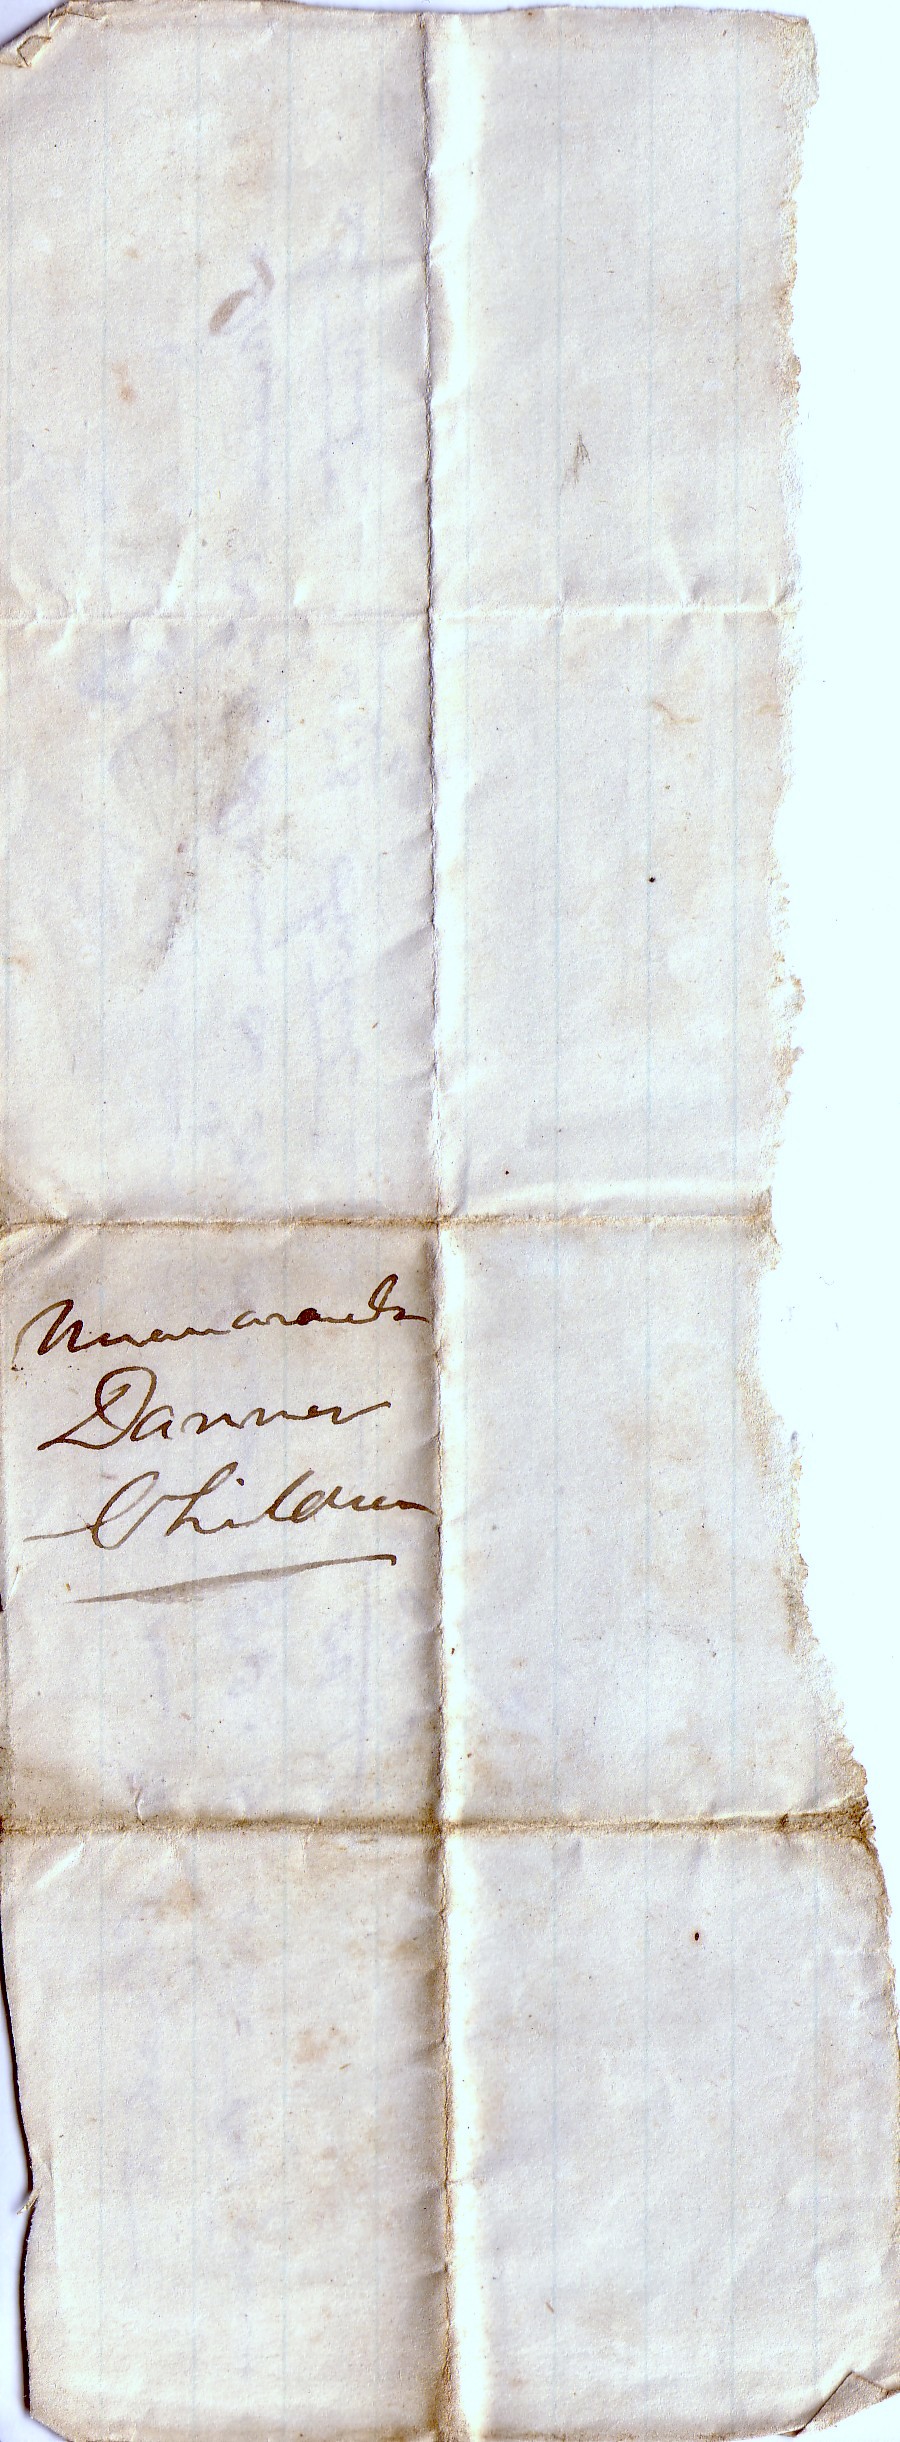 Memoranda
Danner
Children